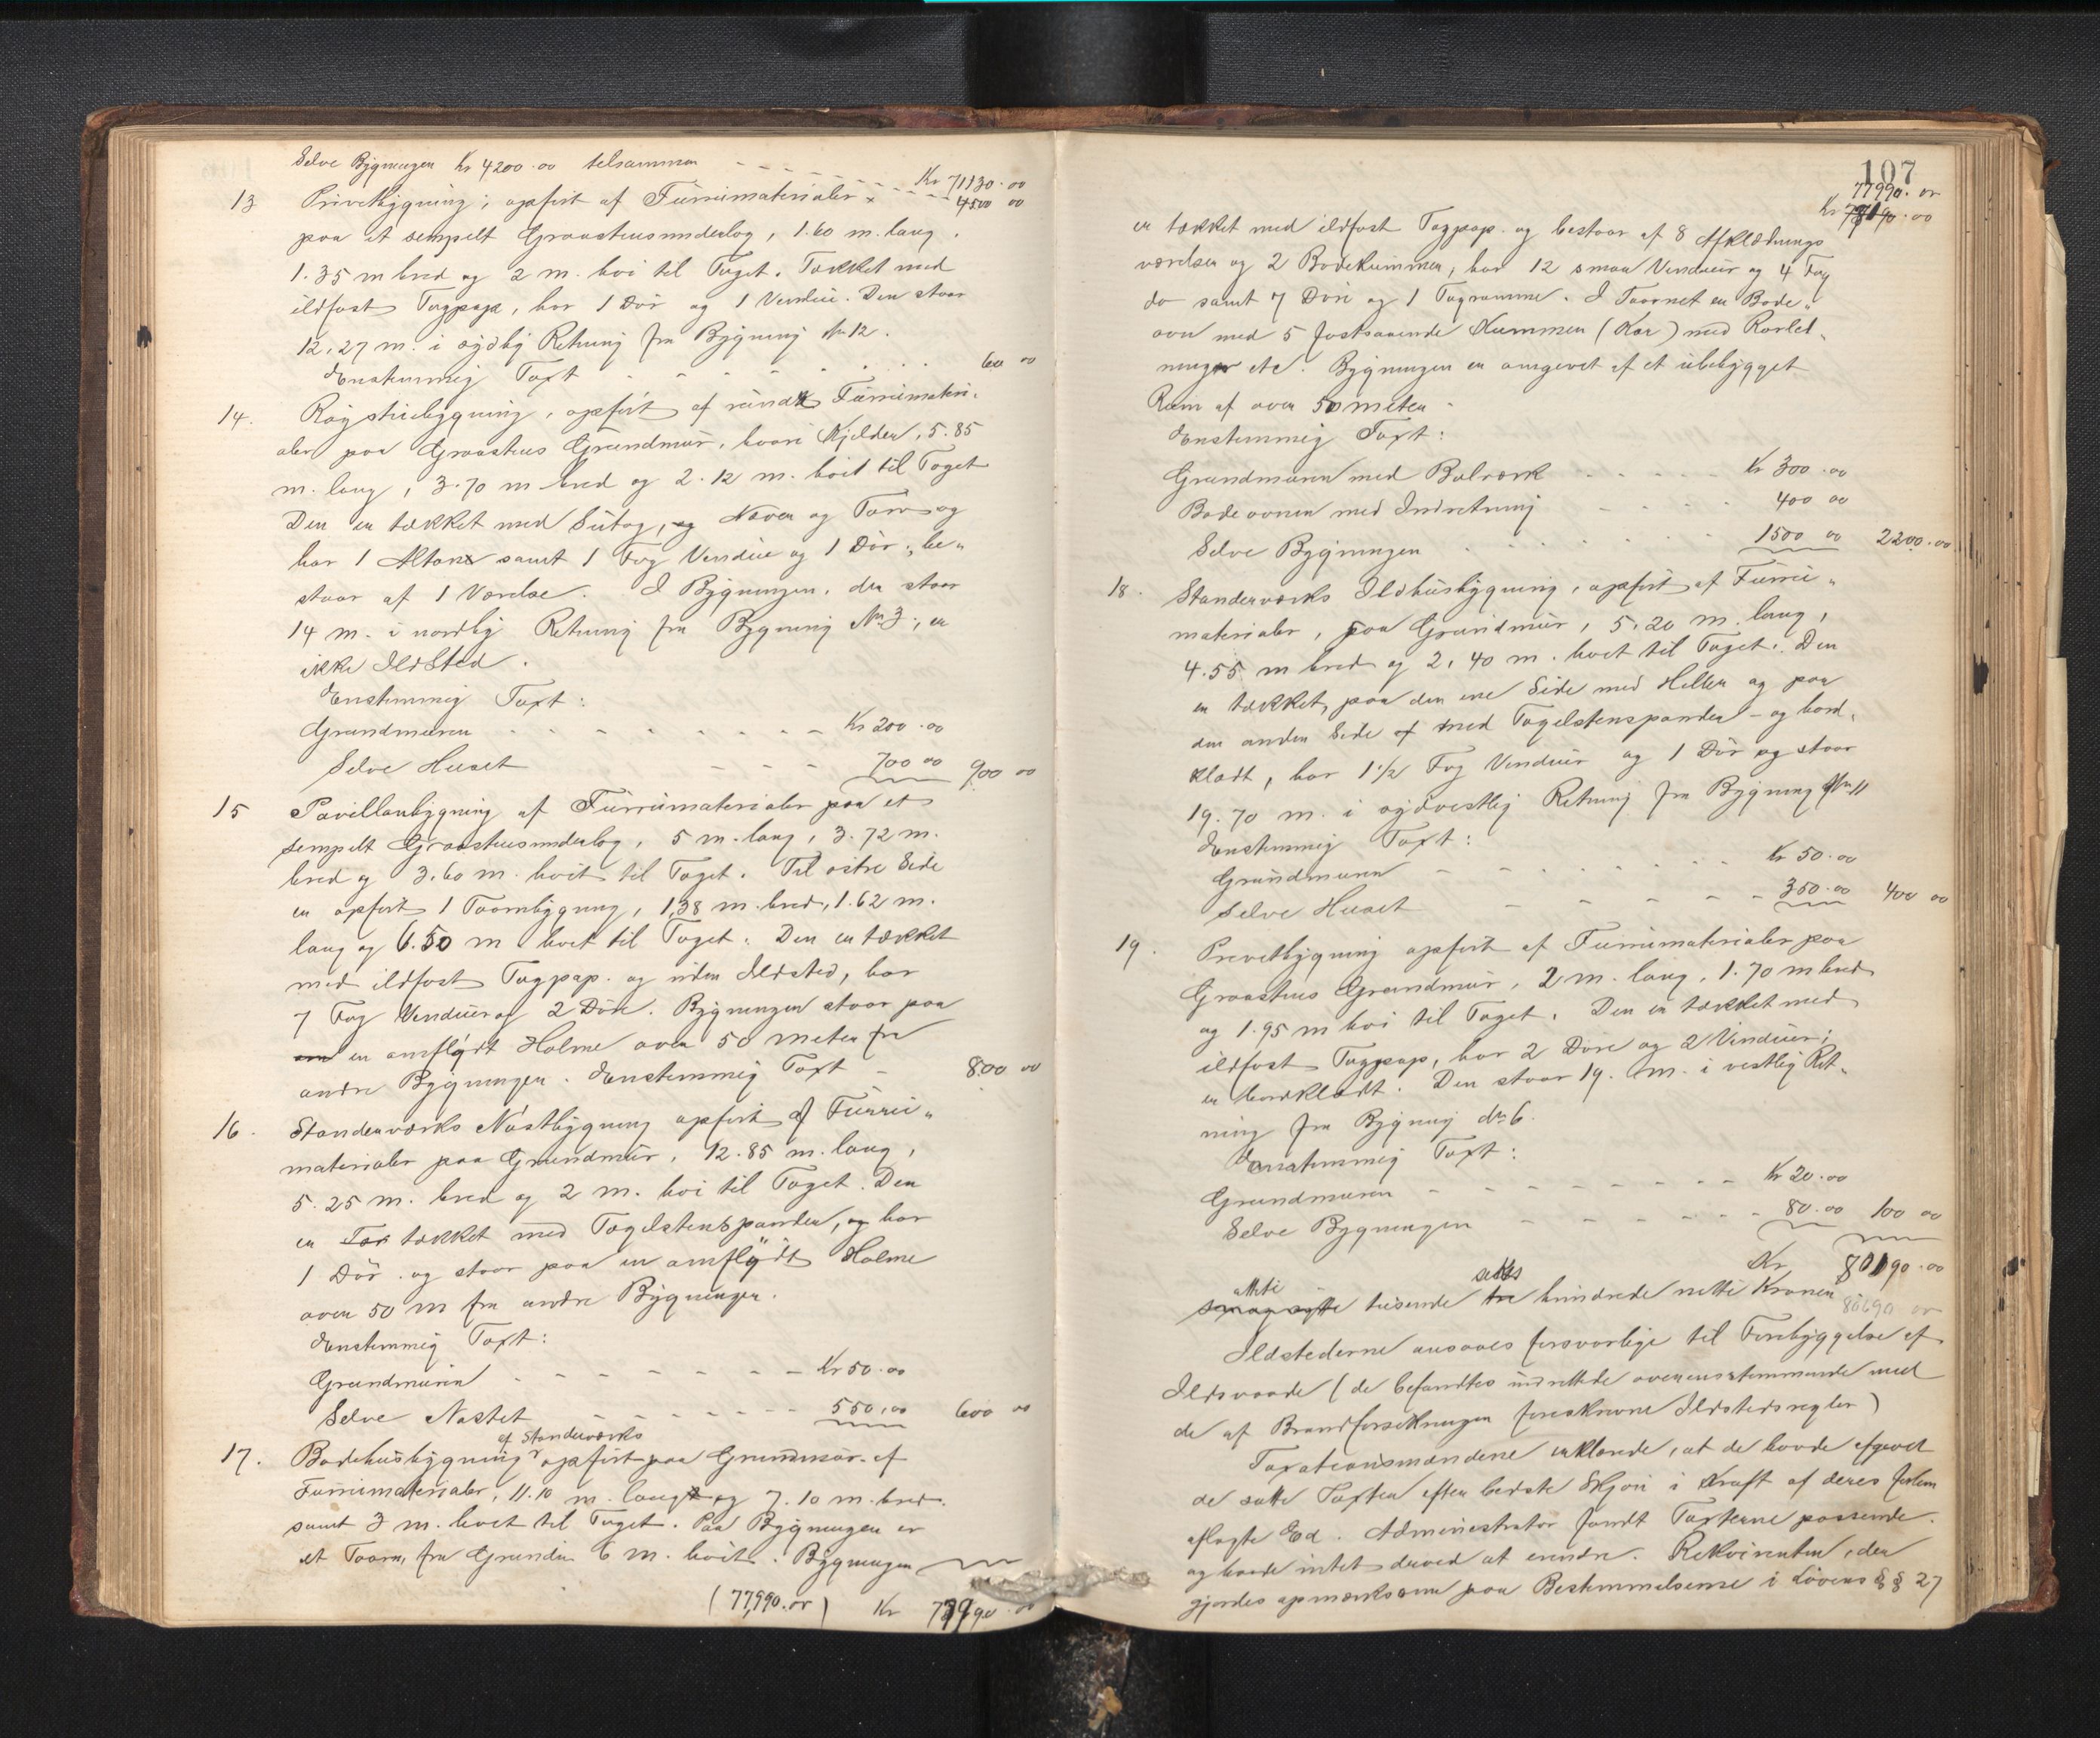 Selve Bygningen Kr 4200.00 tilsammen
Kr 71130.00
13 Privetbygning; opført af Furumaterialer 4500 00
paa et simpelt Graastensunderlag, 1.60 m. lang,
1.35 m bred og 2 m. høi til Taget. Tækket med
ildfast Tagpap, har 1 Dör og 1 Vindue. Den staar
12,27 m. i sydlig Retning fra Bygning No 12.
Enstemmig Taxt 60 00
14. Røgstuebygning, opført af rundt Furumateri-
aler paa Graastens Grundmur, hvori Kjelder, 5.85
m. lang, 3.70 m bred og 2.12 m. høit til Taget
Den er tækket med Sutag, og Næver og Torv og
har 1 Altan samt 1 Fag Vindue og 1 Dör; be-
staar af 1 Værelse. I Bygningen, der staar
14 m. i nordlig Retning fra Bygning No 3, er
ikke Ildsted.
Enstemmig Taxt:
Grundmuren Kr 200.00
Selve Huset 700 00 900 00
15 Pavillonbygning af Furumaterialer paa et
simpelt Graastensunderlag, 5 m. lang, 3.72 m.
bred og 3.60 m. høit til Taget. Til østre Side
er opført 1 Taarnbygning, 1,38 m. bred, 1.62 m.
lang og 6.50 m høit til Taget. Den er tækket
med ildfast Tagpap. og uden Ildsted, har
7 Fag Vinduer og 2 Döre. Bygningen staar paa
en omflydt Holme over 50 meter fra
andre Bygninger. Enstemmig Taxt 800 00
16. Standerværks Nöstbygning opført af Furru-
materialer paa Grundmur, 12.85 m. lang,
5.25 m. bred og 2 m. høi til Taget. Den
er Tæk tækket med Taglstenspander, og har
1 Dör. og staar paa en omflydt Holme
over 50 m fra andre Bygninger.
Enstemmig Taxt:
Grundmuren Kr 50.00
Selve Nöstet 550,00 600 00
af Standerværks
17. Badehusbygning opført paa Grundmur. af
Furumaterialer, 11.10 m. lang og 7.10 m. bred.
samt 3 m. høit til Taget. Paa Bygningen er
et Taarn, fra Grunden 6 m. høit. Bygningen
(77,990.00) Kr 77990.00
107
77990.00
Kr 00
er tækket med ildfast Tagpap. og bestaar af 8 Afklædnings
værelser og 2 Badekummer, har 12 smaa Vinduer og 4 Fag
do samt 7 Döre og 1 Tagramme. I Taarnet en Bade-
ovn med 5 fastsaaende Kummer (Kar) med Rörled-
ninger etc. Bygningen er omgivet af et ubebygget
Rum af over 50 meter
Enstemmig Taxt:
Grundmuren med Bolværk Kr 300.00
Badeovnen med Indretning 400 00
Selve Bygningen 1500 00 2200.00
18. Standerværks Ildhusbygning, opført af Furru-
materialer, paa Grundmur, 5.20 m. lang,
4.55 m bred og 2,40 m. høit til Taget. Den
er tækket, paa den ene Side med Heller og paa
den anden Side af med Taglstenspander - og bord-
klædt, har 1 1/2 Fag Vinduer og 1 Dör og staar
19.70 m. i sydvestlig Retning fra Bygning No 11
Enstemmig Taxt:
Grundmuren Kr 50.00
Selve Huset 350.00 400 00
19. Privetbygning opført af Furrumaterialer paa
Graastens Grundmur, 2 m. lang, 1.70 m bred
og 1.95 m høi til Taget. Den er tækket med
ildfast Tagpap, har 2 Döre og 2 Vinduer;
er bordklædt. Den staar 19. m. i vestlig Ret-
ning fra Bygning No 6.
Enstemmig Taxt:
Grundmuren Kr 20.00
Selve Bygningen 80.00 100 00
Kr 00
otti seks
tusende tre hundrede nitti Kroner 80690 00
Ildstederne ansaaes forsvarlige til Forebyggelse af
Ildsvaade (de befandtes indrettede overensstemmende med
de af Brandforsikringen foreskrevne Ildstedsregler)
Taxationsmændene erklærede, at de havde afgivet
de satte Taxter efter bedste Skjøn i Kraft af deres forhen
aflagte Ed. Administrator fandt Taxterne passende
og havde intet derved at erindre. Rekvirenten, der
gjordes opmærksom paa Bestemmelserne i Lovens §§ 27